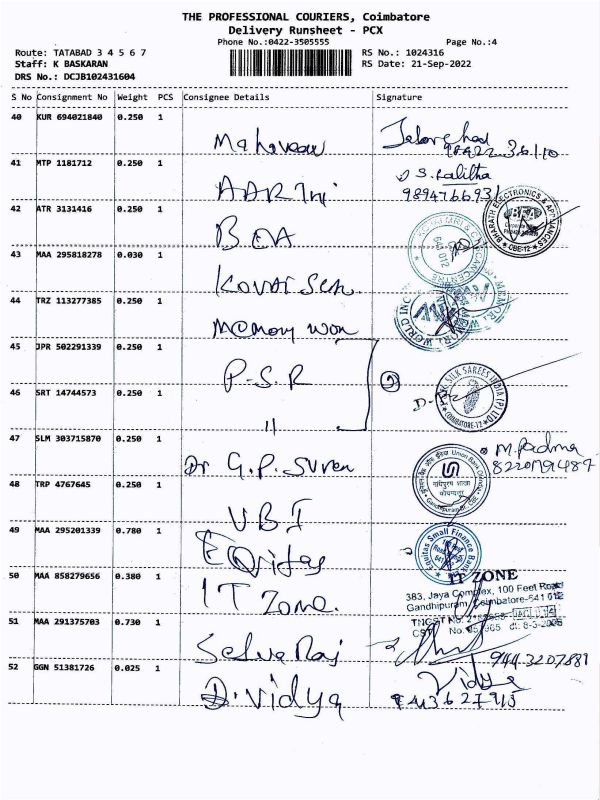 THE PROFESSIONAL COURIERS, Coimbatore
Delivery Runsheet - PCX
Phone No.:0422-3505555
Page No.:4
Route: TATABAD 3 4 5 6 7
RS No.: 1024316
Staff: K BASKARAN
RS Date: 21-Sep-2022
DRS No.: DCJB102431604
S No Consignment No Weight PCS Consignee Details Signature
40 KUR 694021840 0.250 1
41 MTP 1181712 0.250 1 AARThi S. Lalitha
42 ATR 3131416 0.250 1
BHARATH ELECTRONICS & APPLIANCES
CBE-12
43 MAA 295818278 0.030 1 KOVAI Scan
44 TRZ 113277385 0.250 1 Memory won
45 JPR 502291339 0.250 1 P-S-R
46 SRT 14744573 0.250 1 11
SILK SAREES INDIA (P) LTD
COIMBATORE-12
47 SLM 303715870 0.250 1 Dr G.P. Suren M. Padma
48 TRP 4767645 0.250 1 UBI
Union Bank
49 MAA 295201339 0.780 1 Equitas
Equitas Small Finance Bank
50 MAA 858279656 0.380 1 IT Zone.
IT ZONE
383, Jaya Complex, 100 Feet Road
Gandhipuram, Coimbatore-641 012
TNGST No.
CST No. dt: 8-3-2005
51 MAA 291375703 0.730 1 Selvaraj 944 3207881
52 GGN 51381726 0.025 1 D. Vidya Vidya